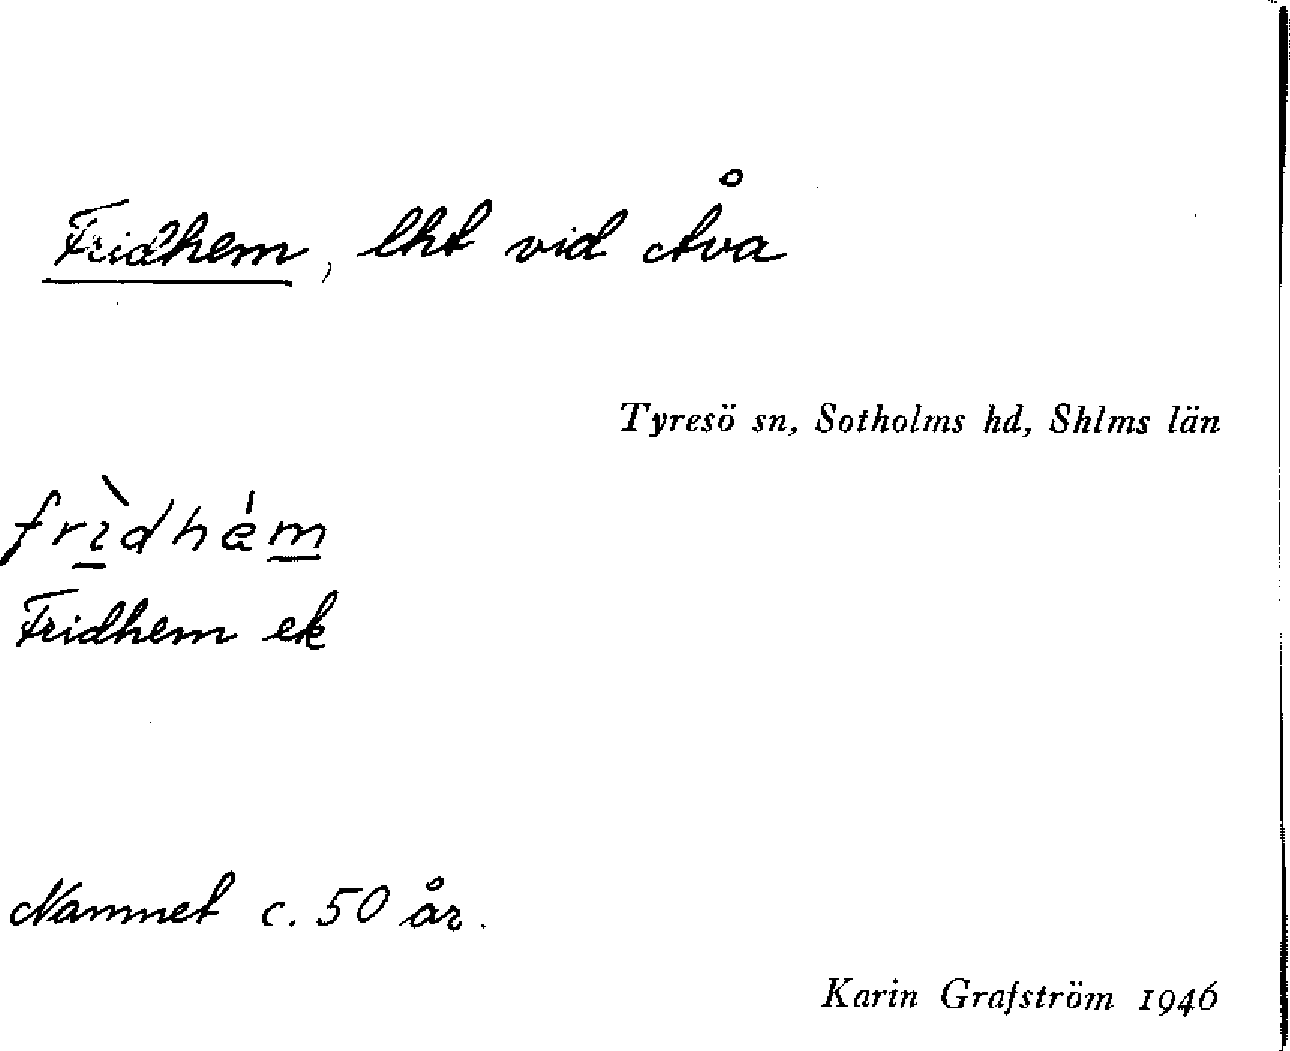 Fridhem, lht vid Åva
Tyresö sn, Sotholms hd, Shlms län
frìdhém
Fridhem ek
Namnet c. 50 år.
Karin Grafström 1946